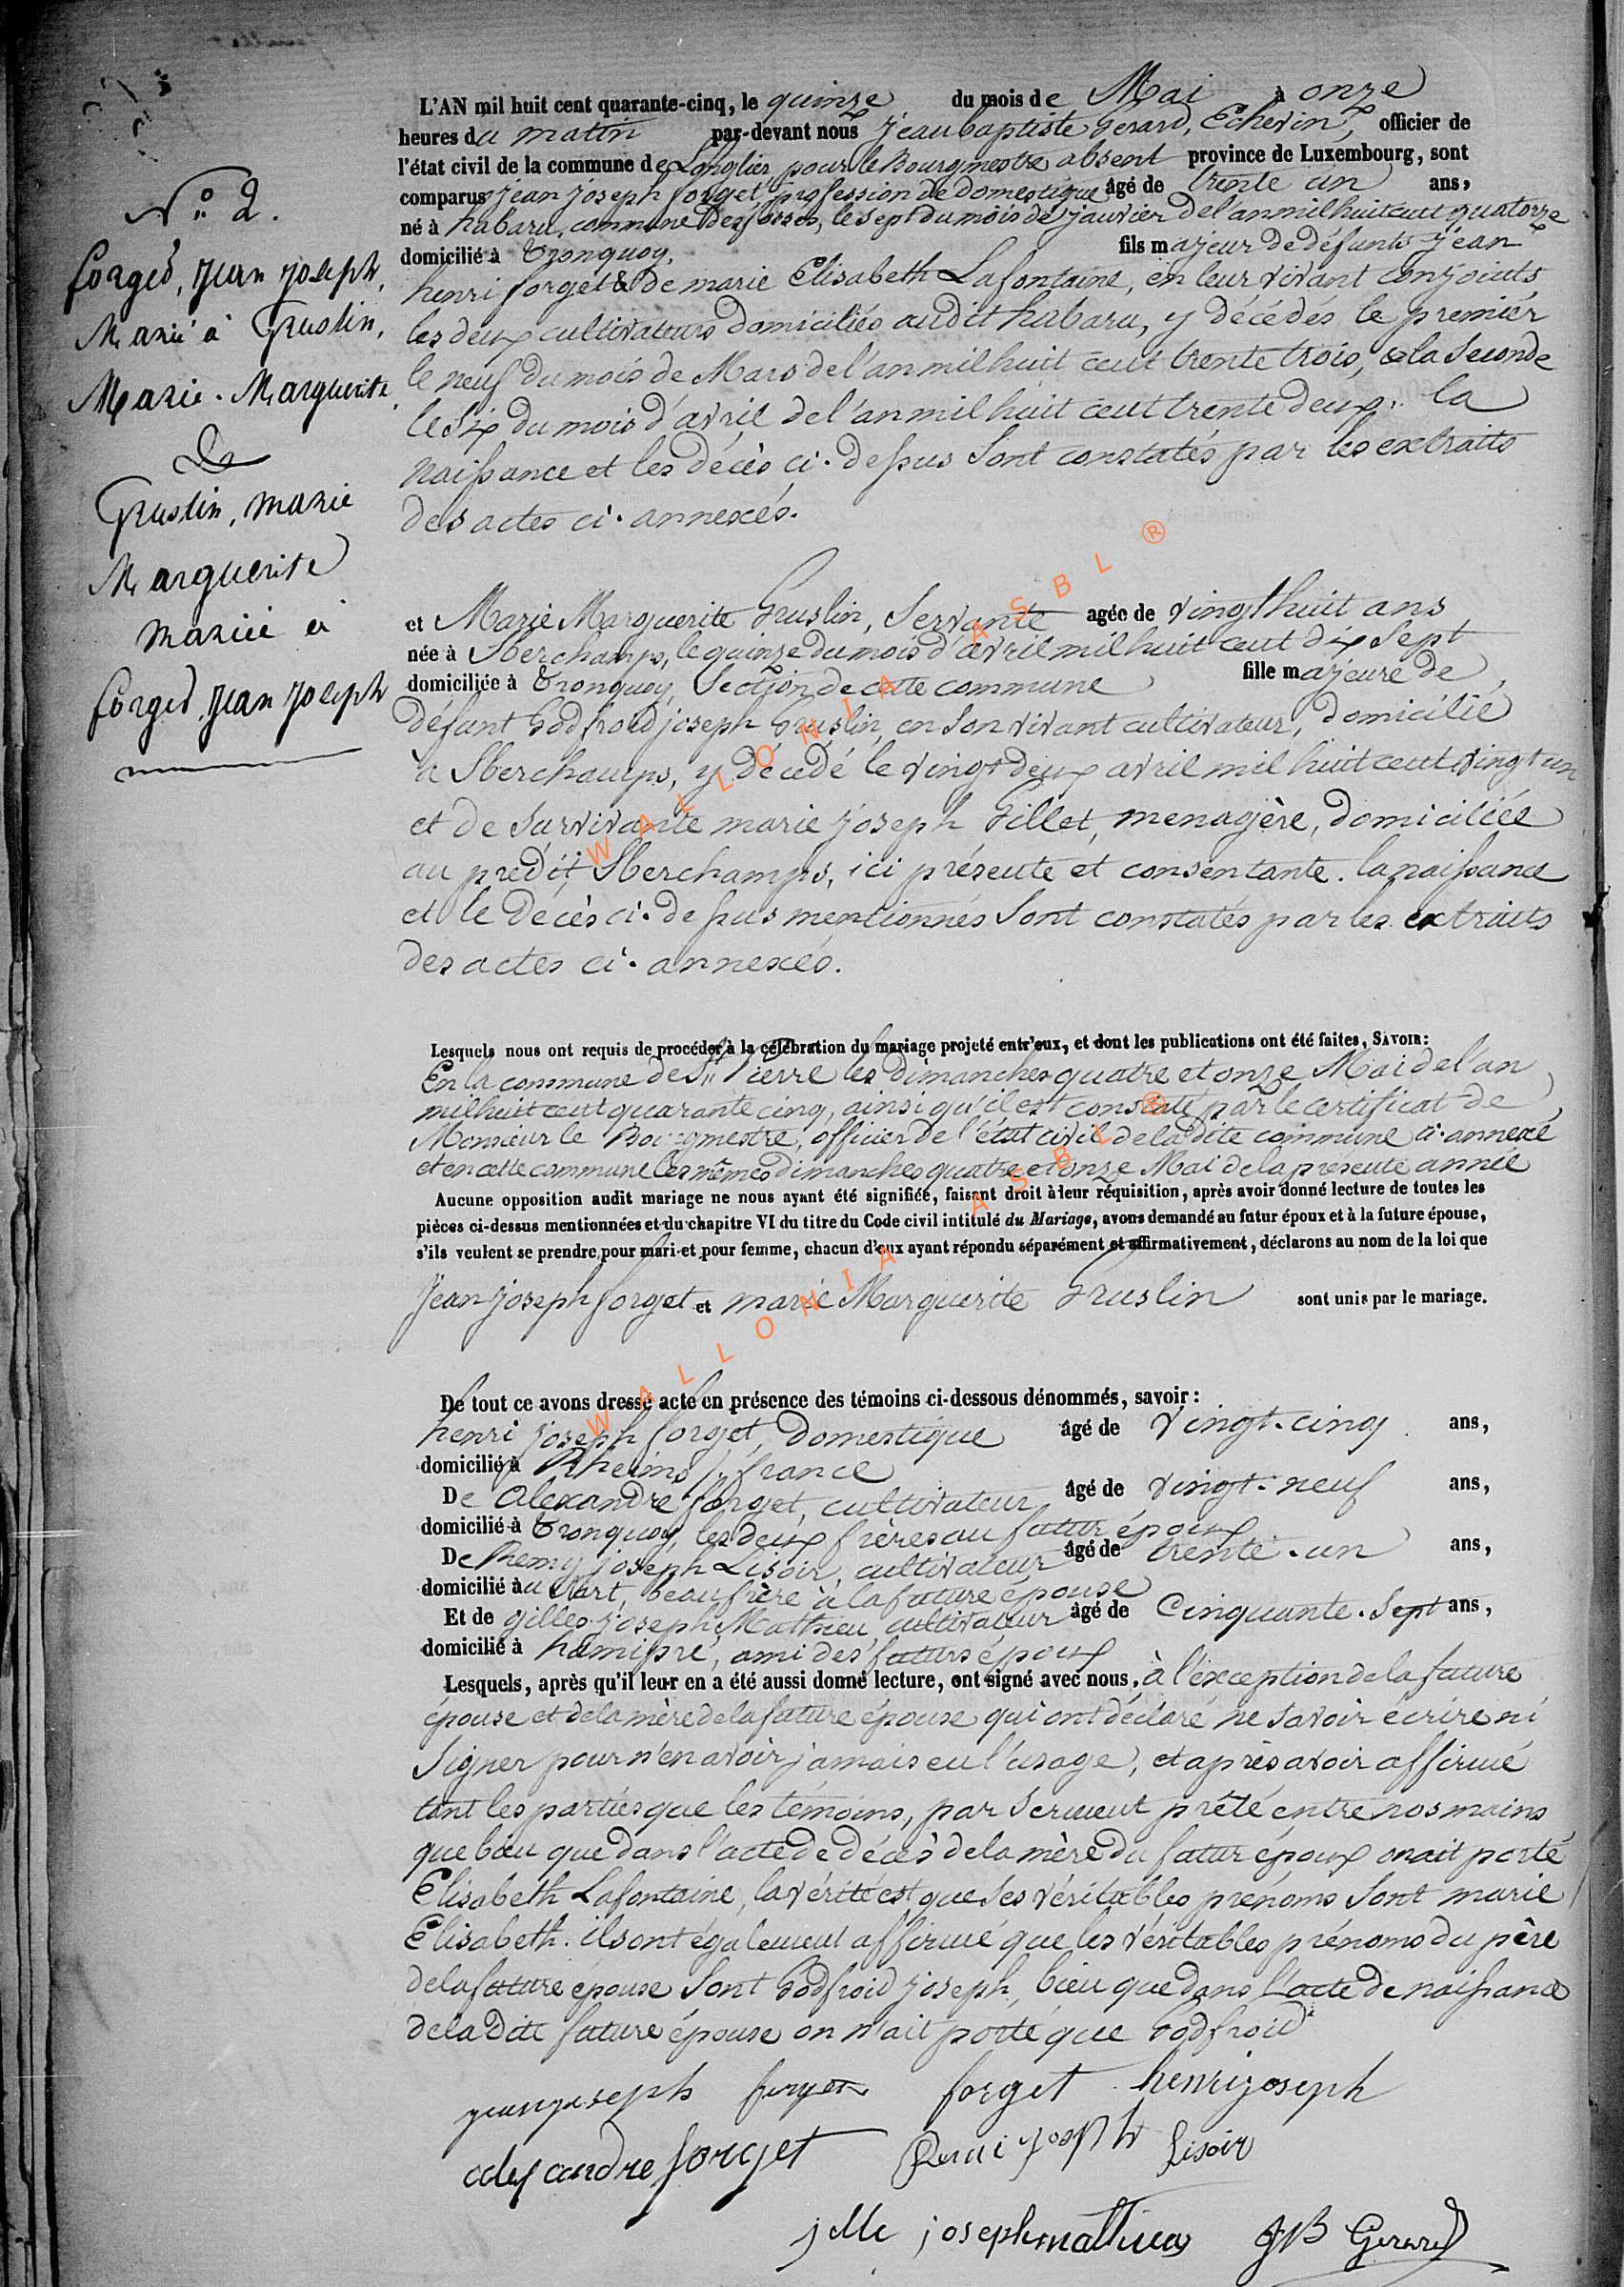 N.° 2.
forget, Jean joseph,
Marié à Gruslin,
Marie-Marguerite,
De
Gruslin, marie
Marguerite
mariée à
forget, Jean joseph
L'AN mil huit cent quarante-cinq, le quinze du mois de Mai à onze
heures du matin par-devant nous Jean baptiste Gerard, Echevin, officier de
l'état civil de la commune de Longlier, pour le Bourgmestre absent province de Luxembourg, sont
comparus jean joseph forget, profession de domestique âgé de trente un ans,
né à habaru, commune des fosses, le sept du mois de janvier de l'an mil huit cent quatorze
domicilié à Tronquoy, fils majeur de défunts Jean
henri forget & de marie Elisabeth Lafontaine, en leur vivant conjoints
les deux cultivateurs domiciliés audit habaru, y décédés le premier
le neuf du mois de Mars de l'an mil huit cent trente trois, & la seconde
le six du mois d'avril de l'an mil huit cent trente deux. la
naissance et les décès ci-dessus sont constatés par les extraits
des actes ci-annexés.
et Marie Marguerite Gruslin, Servante agée de vingt huit ans
née à Sberchamps, le quinze du mois d'avril mil huit cent dix sept
domiciliée à Tronquoy, Section de cette commune fille majeure de
défunt Godfroid joseph Gruslin, en son vivant cultivateur, domicilié
à Sberchamps, y décedé le vingt deux avril mil huit cent vingt un
et de survivante marie joseph Gillet, menagère, domiciliée
au predit Sberchamps, ici présente et consentante. la naissance
et le décès ci-dessus mentionnés sont constatés par les extraits
des actes ci-annexés.
Lesquels nous ont requis de procéder à la célébration du mariage projeté entr'eux, et dont les publications ont été faites, SAVOIR:
En la commune de St. Pierre les dimanches quatre et onze Mai de l'an
mil huit cent quarante cinq, ainsi qu'il est constaté par le certificat de
Monsieur le Bourgmestre, officier de l'état civil de la dite commune ci-annexé
et en cette commune les mêmes dimanches quatre et onze Mai de la présente année
Aucune opposition audit mariage ne nous ayant été signifiée, faisant droit à leur réquisition, après avoir donné lecture de toutes les
pièces ci-dessus mentionnées et du chapitre VI du titre du Code civil intitulé du Mariage, avons demandé au futur époux et à la future épouse,
s'ils veulent se prendre pour mari et pour femme, chacun d'eux ayant répondu séparément et affirmativement, déclarons au nom de la loi que
Jean joseph forget et marie Marguerite Gruslin sont unis par le mariage.
De tout ce avons dressé acte en présence des témoins ci-dessous dénommés, savoir:
henri joseph forget, domestique âgé de vingt-cinq ans,
domicilié à Rheims, france
De alexandre forget, cultivateur âgé de vingt-neuf ans,
domicilié à Tronquoy, les deux frères au futur époux
De Remy joseph Lisoir, cultivateur âgé de trente-un ans,
domicilié au Sart, beau frère à la future épouse
Et de gilles joseph Mathieu, cultivateur âgé de Cinquante-sept ans,
domicilié à hamipré, ami des futurs époux
Lesquels, après qu'il leur en a été aussi donné lecture, ont signé avec nous, à l'exception de la future
épouse et de la mère de la future épouse qui ont déclaré ne savoir écrire ni
signer pour n'en avoir jamais eu l'usage, et après avoir affirmé
tant les parties que les témoins, par serment prêté entre nos mains
que bien que dans l'acte de décès de la mère du futur époux on ait porté
Elisabeth Lafontaine, la vérité est que ses véritables prénoms sont marie
Elisabeth. ils ont également affirmé que les véritables prénoms du père
de la future épouse sont Godfroid joseph, bien que dans l'acte de naissance
de la dite future épouse on n'ait porté que Godfroid
jean joseph forget forget henri joseph
alexandre forget Remi joseph Lisoir
jille joseph mathieu JB Gerard
WALLONIA ASBL ®
WALLONIA ASBL ®